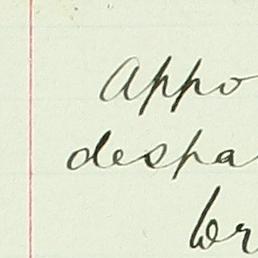 Appo
despa
br